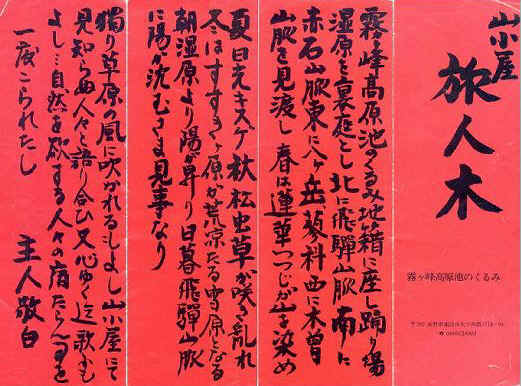 山小屋
旅人木
霧ヶ峰高原池のくるみ
霧ヶ峰高原池のくるみ地籍に座し踊り場
湿原を裏庭とし北に飛騨山脈南に
赤石山脈東に八ヶ岳蓼科西に木曽
山脈を見渡し春は蓮華つつじが峯を染め
夏日光キスゲ秋松虫草が咲き乱れ
冬はすすきヶ原が荒涼たる雪原となる
朝湿原より陽が昇り日暮飛騨山脈
に陽が沈むさま見事なり
獨り草原の風に吹かれるもよし山小屋にて
見知らぬ人々と語り合ひ又心ゆく迄歌ふも
よし…自然を欲する人々の宿たらん事を
一度こられたし
主人敬白